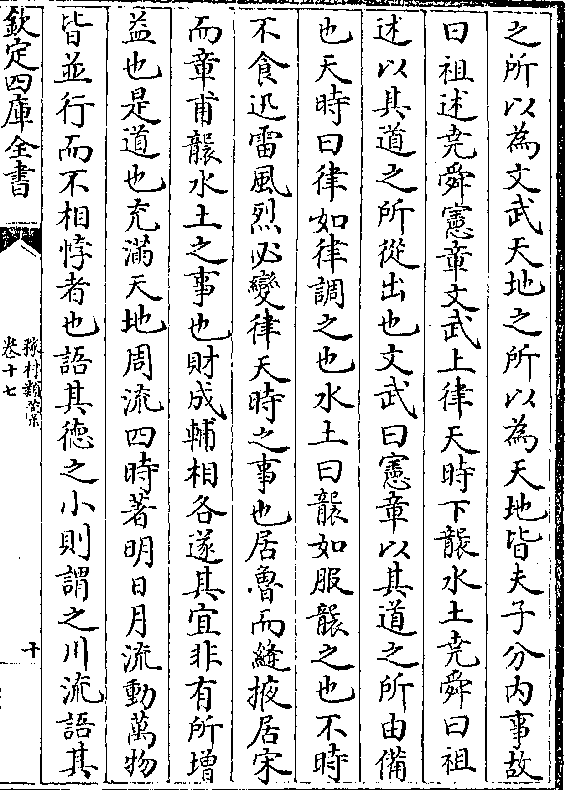 之所以為文武天地之所以為天地皆夫子分内事故
曰祖述堯舜憲章文武上律天時下襲水土堯舜曰祖
述以其道之所從出也文武曰憲章以其道之所由備
也天時曰律如律調之也水土曰襲如服襲之也不時
不食迅雷風烈必變律天時之事也居魯而縫掖居宋
而章甫襲水土之事也財成輔相各遂其宜非有所增
益也是道也充滿天地周流四時著明日月流動萬物
皆並行而不相悖者也語其德之小則謂之川流語其
欽定四庫全書
稼村類藁
卷十七
十